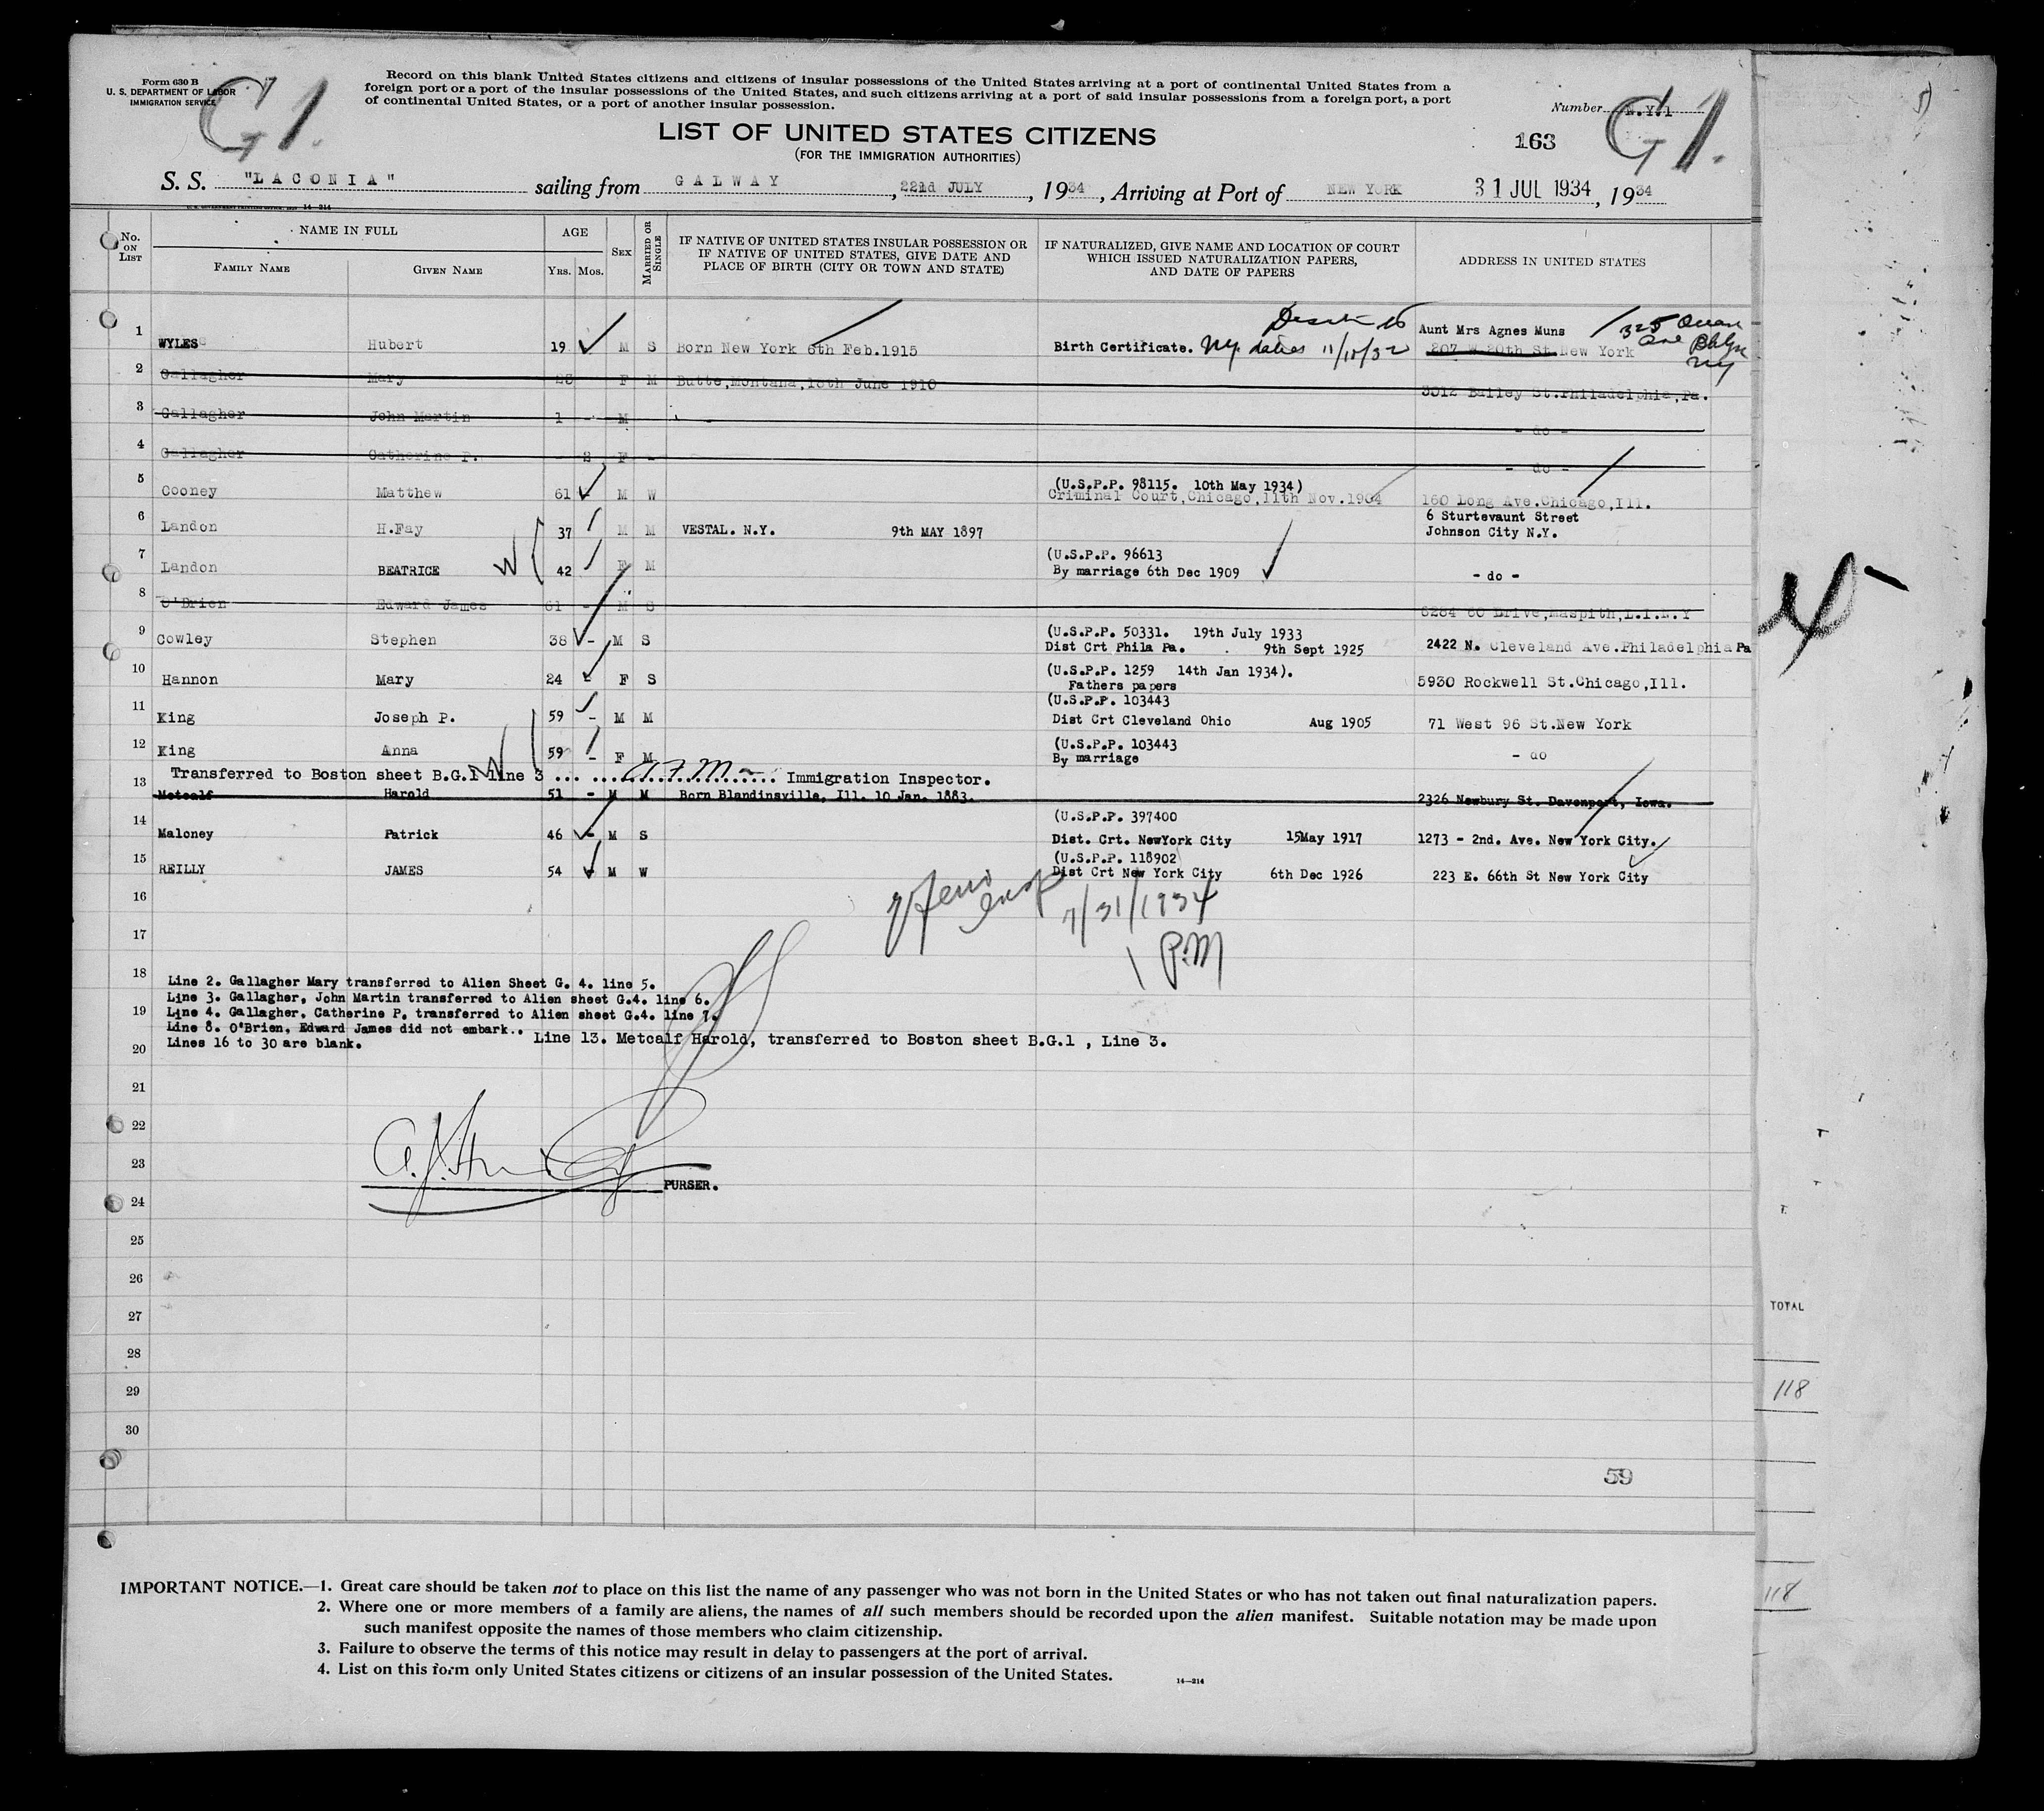 Form 630 B
U. S. DEPARTMENT OF LABOR
IMMIGRATION SERVICE
G 1.
Record on this blank United States citizens and citizens of insular possessions of the United States arriving at a port of continental United States from a
foreign port or a port of the insular possessions of the United States, and such citizens arriving at a port of said insular possessions from a foreign port, a port
of continental United States, or a port of another insular possession.
Number N.Y.1
G 1.
163
LIST OF UNITED STATES CITIZENS
(FOR THE IMMIGRATION AUTHORITIES)
S. S. "LACONIA" sailing from GALWAY, 22nd JULY, 1934, Arriving at Port of NEW YORK 31 JUL 1934, 1934
14—214
No. ON LIST
NAME IN FULL
FAMILY NAME
GIVEN NAME
AGE
YRS. MOS.
SEX
MARRIED OR SINGLE
IF NATIVE OF UNITED STATES INSULAR POSSESSION OR
IF NATIVE OF UNITED STATES, GIVE DATE AND
PLACE OF BIRTH (CITY OR TOWN AND STATE)
IF NATURALIZED, GIVE NAME AND LOCATION OF COURT
WHICH ISSUED NATURALIZATION PAPERS,
AND DATE OF PAPERS
ADDRESS IN UNITED STATES
1 WYLES Hubert 19 M S Born New York 6th Feb.1915 Birth Certificate. NY dated 11/15/32 Aunt Mrs Agnes Muns
207 W 20th St New York 325 Ocean Ave Bklyn NY
2 Gallagher Mary 23 F M Butte,Montana,18th June 1910 3012 Bailey St.Philadelphia,Pa.
3 Gallagher John Martin 1 - M - do -
4 Gallagher Catherine P. - 8 F - - do -
5 Cooney Matthew 61 - M W (U.S.P.P. 98115. 10th May 1934)
Criminal Court,Chicago,11th Nov.1904 160 Long Ave.Chicago,Ill.
6 Landon H.Fay 37 M M VESTAL. N.Y. 9th MAY 1897 6 Sturtevaunt Street
Johnson City N.Y.
7 Landon BEATRICE 42 F M (U.S.P.P. 96613
By marriage 6th Dec 1909 - do -
W
8 O'Brien Edward James 61 - M S 6284 60 Drive,Maspith,L.I.N.Y
9 Cowley Stephen 38 - M S (U.S.P.P. 50331. 19th July 1933
Dist Crt Phila Pa. 9th Sept 1925 2422 N. Cleveland Ave.Philadelphia Pa
10 Hannon Mary 24 - F S (U.S.P.P. 1259 14th Jan 1934).
Fathers papers 5930 Rockwell St.Chicago,Ill.
11 King Joseph P. 59 - M M (U.S.P.P. 103443
Dist Crt Cleveland Ohio Aug 1905 71 West 96 St.New York
12 King Anna 59 - F M (U.S.P.P. 103443
By marriage - do
W
Transferred to Boston sheet B.G.1 line 3 ... A F M ... Immigration Inspector.
13 Metcalf Harold 51 - M M Born Blandinsville, Ill. 10 Jan. 1883. 2326 Newbury St. Davenport, Iowa.
14 Maloney Patrick 46 - M S (U.S.P.P. 397400
Dist. Crt. NewYork City 15May 1917 1273 - 2nd. Ave. New York City.
15 REILLY JAMES 54 - M W (U.S.P.P. 118902
Dist Crt New York City 6th Dec 1926 223 E. 66th St New York City
16
Insp 7/31/1934
17
1 P.M
18
Line 2. Gallagher Mary transferred to Alien Sheet G. 4. line 5.
Line 3. Gallagher, John Martin transferred to Alien sheet G.4. line 6.
19
Line 4. Gallagher, Catherine P. transferred to Alien sheet G.4. line 7.
Line 8. O'Brien, Edward James did not embark..
Lines 16 to 30 are blank.
Line 13. Metcalf Harold, transferred to Boston sheet B.G.1 , Line 3.
20
21
22
23
PURSER.
24
25
26
27
28
29
30
59
TOTAL
118
118
IMPORTANT NOTICE.—1. Great care should be taken not to place on this list the name of any passenger who was not born in the United States or who has not taken out final naturalization papers.
2. Where one or more members of a family are aliens, the names of all such members should be recorded upon the alien manifest. Suitable notation may be made upon
such manifest opposite the names of those members who claim citizenship.
3. Failure to observe the terms of this notice may result in delay to passengers at the port of arrival.
4. List on this form only United States citizens or citizens of an insular possession of the United States.
14—214